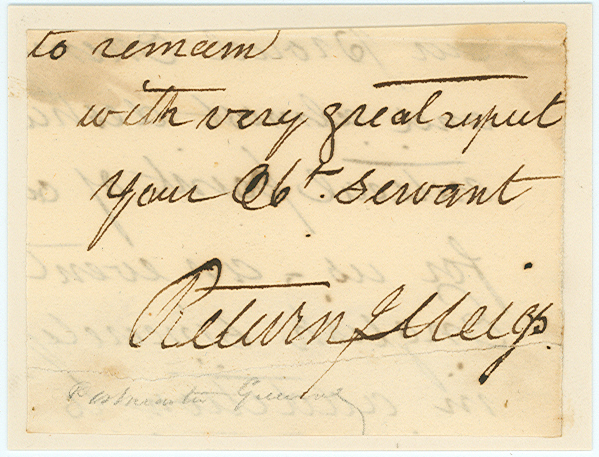 to remain
with very great respect
your Obt. Servant
Return J Meigs.
Postmaster General